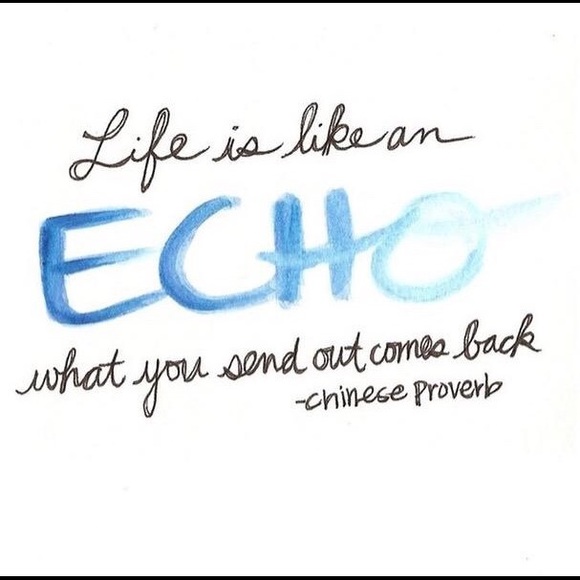 Life is like an
ECHO
what you send out comes back
-chinese proverb